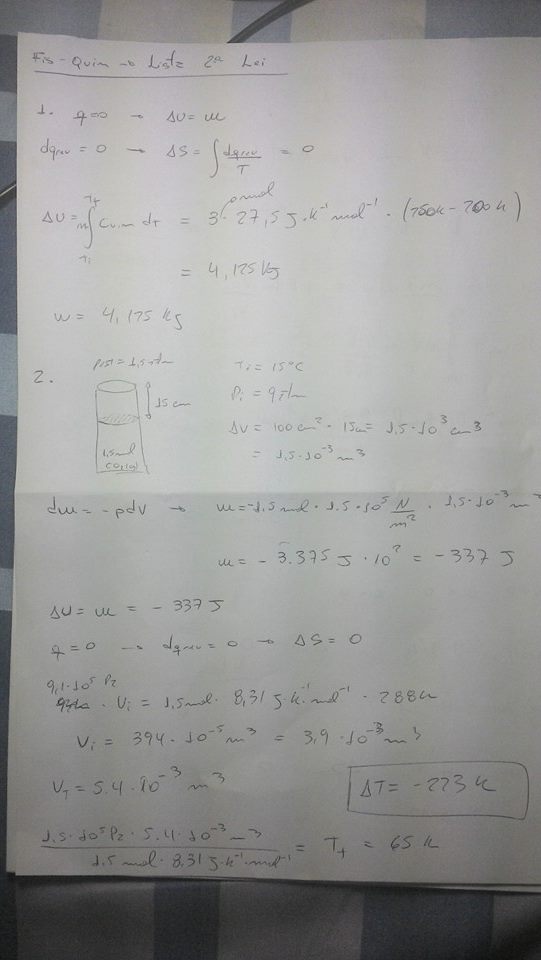 Fis-Quim → Lista 2ª Lei
1. q=0 → ΔU = w
dqrev = 0 → ΔS = ∫ dqrev/T = 0
ΔU = n∫ Cv,m dT = 3 mol · 27,5 J·K⁻¹mol⁻¹ · (250K - 200K)
Tf
Ti
= 4,125 KJ
w = 4,125 KJ
2.
pext = 1,5 atm
15 cm
1,5 mol
CO2(g)
Ti = 15°C
Pi = 9 atm
ΔV = 100 cm² · 15cm = 1,5·10³ cm³
= 1,5·10⁻³ m³
dw = -pdV → w = -1,5 mol · 1,5·10⁵ N/m² · 1,5·10⁻³ m³
w = - 3.375 J · 10² = - 337 J
ΔU = w = - 337 J
q = 0 → dqrev = 0 → ΔS = 0
9,1·10⁵ Pa
· Vi = 1,5 mol · 8,31 J·K⁻¹mol⁻¹ · 288K
Vi = 394 · 10⁻⁵ m³ = 3,9 · 10⁻³ m³
Vf = 5.4 · 10⁻³ m³
ΔT = -223 K
1,5·10⁵ Pa · 5.4·10⁻³ m³ / 1,5 mol · 8,31 J·K⁻¹·mol⁻¹ = Tf = 65 K